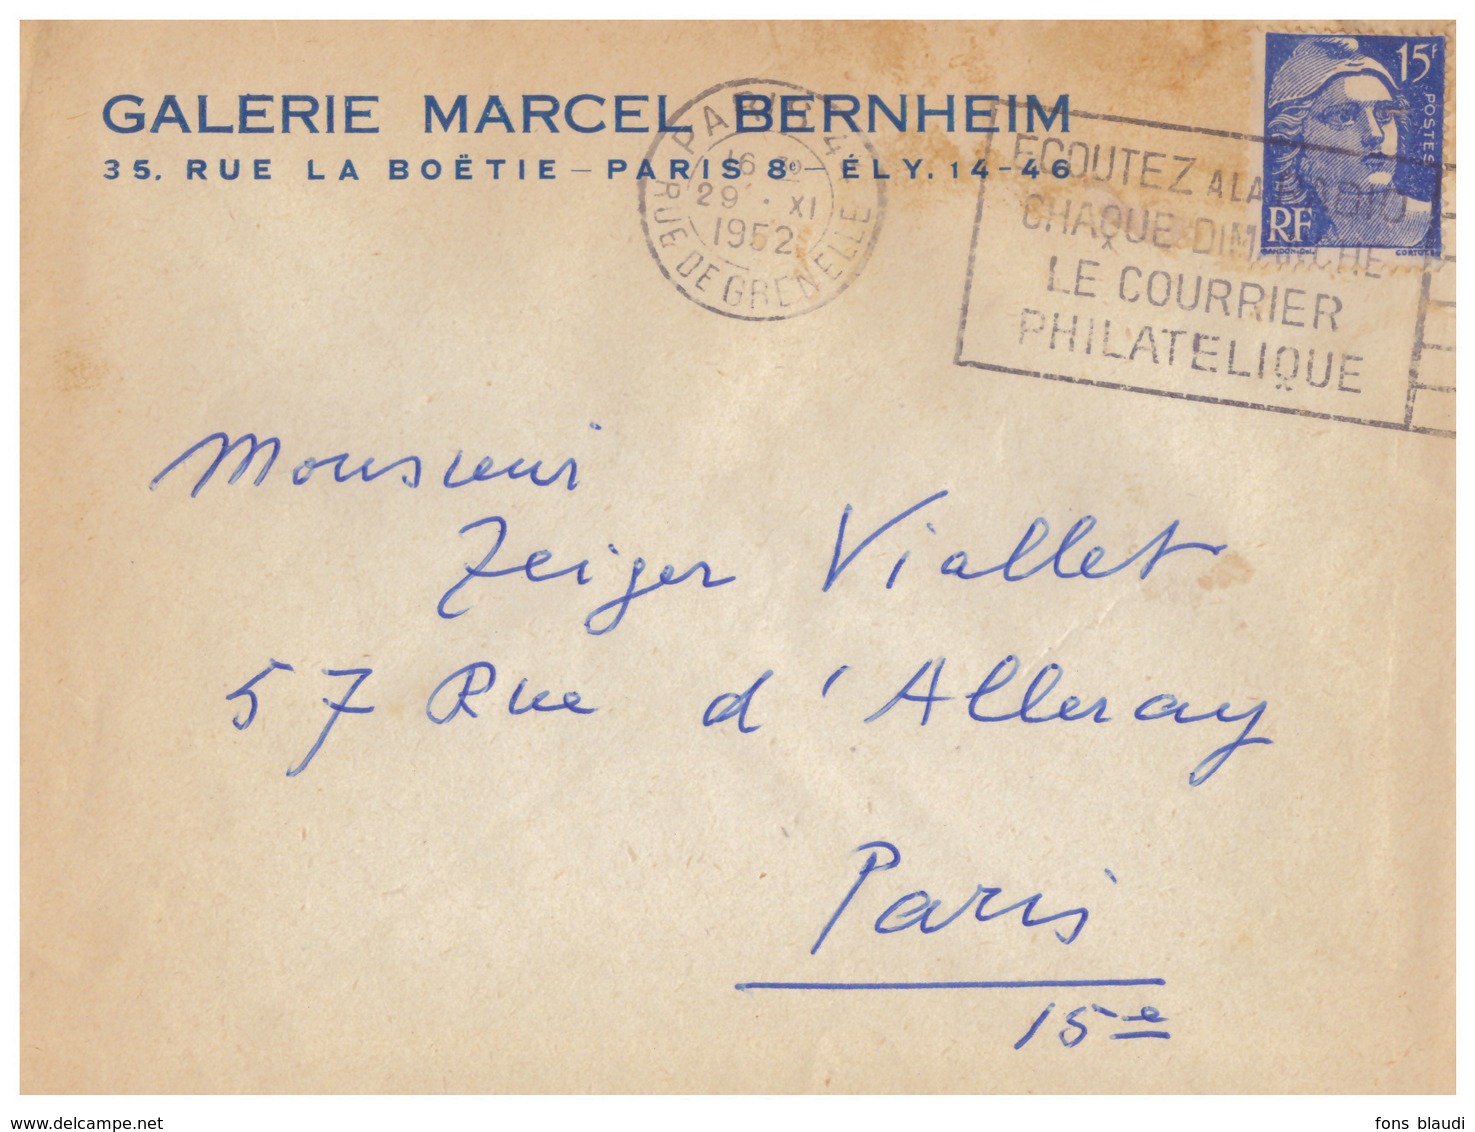 GALERIE MARCEL BERNHEIM
35, RUE LA BOËTIE – PARIS 8e – ÉLY. 14-46
PARIS 4
16 H
29 · XI
1952
RUE DE GRENELLE
ECOUTEZ A LA RADIO
CHAQUE DIMANCHE
LE COURRIER
PHILATELIQUE
15F
POSTES
RF
GANDON-DEL.
CORTOT-SC.
Monsieur
Zeiger Viallet
57 Rue d'Alleray
Paris
15e
www.delcampe.net
fons blaudi